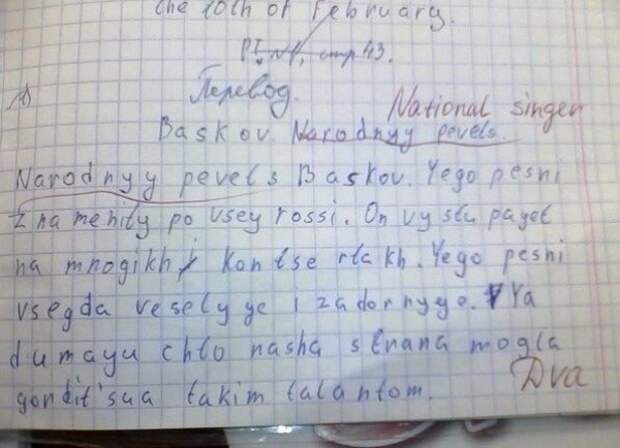 the 10th of February.
P.I, N1, стр 43.
1)
Перевод.
National singer
Baskov. Narodnyy pevets.
Narodnyy pevets Baskov. Yego pesni
znamenity po vsey rossi. On vystupayet
na mnogikh kontsertakh. Yego pesni
vsegda veselyye i zadornyye. Ya
dumayu chto nasha strana mogla
gordit'sua takim talantom.
Dva